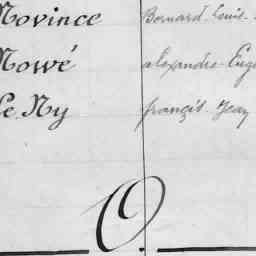 Novince Bernard Louis
Nowé alexandre Eugè
Le Ny françis Jean
O.